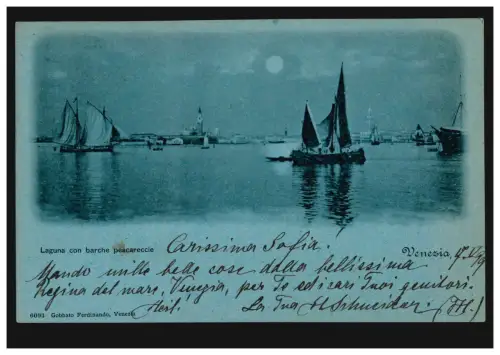 Laguna con barche peacareccie
Carissima Sofia.
Venezia,
Mando mille belle cose dalla bellissima
Regina del mare, Venezia, per Te ed i cari Tuoi genitori.
La Tua
6093 Gobbato Ferdinando, Venezia